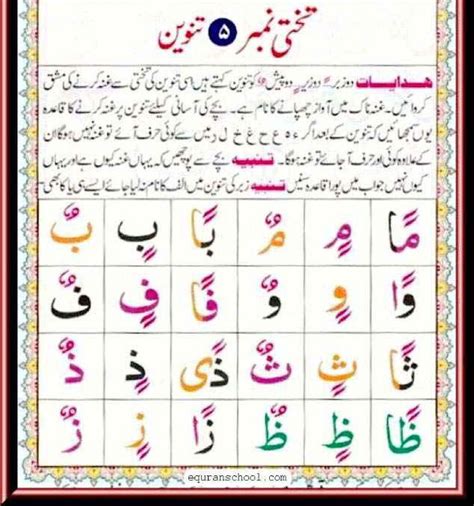 تختی نمبر ۵ تنوین
ھدایات دو زبر ً دو زیر ٍ دو پیش ٌ کو تنوین کہتے ہیں اسی تنوین کی تختی سے غنہ کرنے کی مشق
کروائیں۔ غنہ ناک میں آواز چھپانے کا نام ہے۔ بچے کی آسانی کیلئے تنوین پر غنہ کرنے کا قاعدہ
یوں سمجھائیں کہ تنوین کے بعد اگر ء ہ ع ح غ خ ل ر میں سے کوئی حرف آئے تو غنہ نہیں ہوگا ان
کے علاوہ کوئی اور حرف آ جائے تو غنہ ہوگا۔ تنبیہ بچے سے پوچھیں کہ یہاں غنہ کیوں ہے اور یہاں
کیوں نہیں جواب میں پورا قاعدہ سنیں تنبیہ زبر کی تنوین میں الف کا نام نہ لیا جائے ایسے ہی یا کا بھی
مًا مٍ مٌ بًا بٍ بٌ
وًا وٍ وٌ فًا فٍ فٌ
ثًا ثٍ ثٌ ذًی ذٍ ذٌ
ظًا ظٍ ظٌ زًا زٍ زٌ
equranschool.com